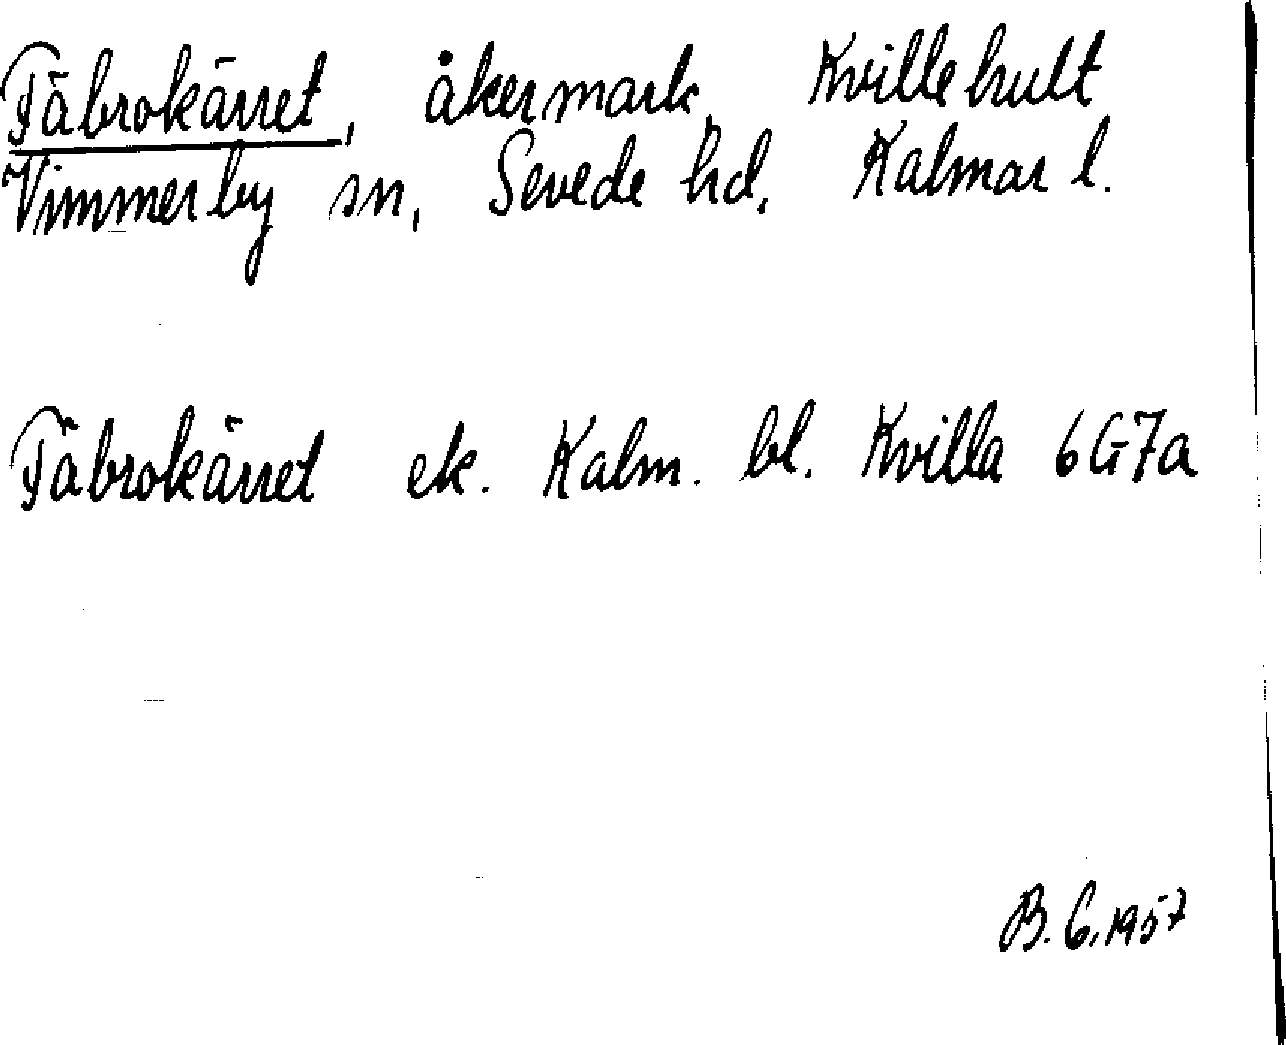 Fäbrokärret, åkermark, Kvillehult
Vimmerby sn, Sevede hd, Kalmar l.
Fäbrokärret ek. Kalm. bl. Kvilla 6G7a
B. G. 1957